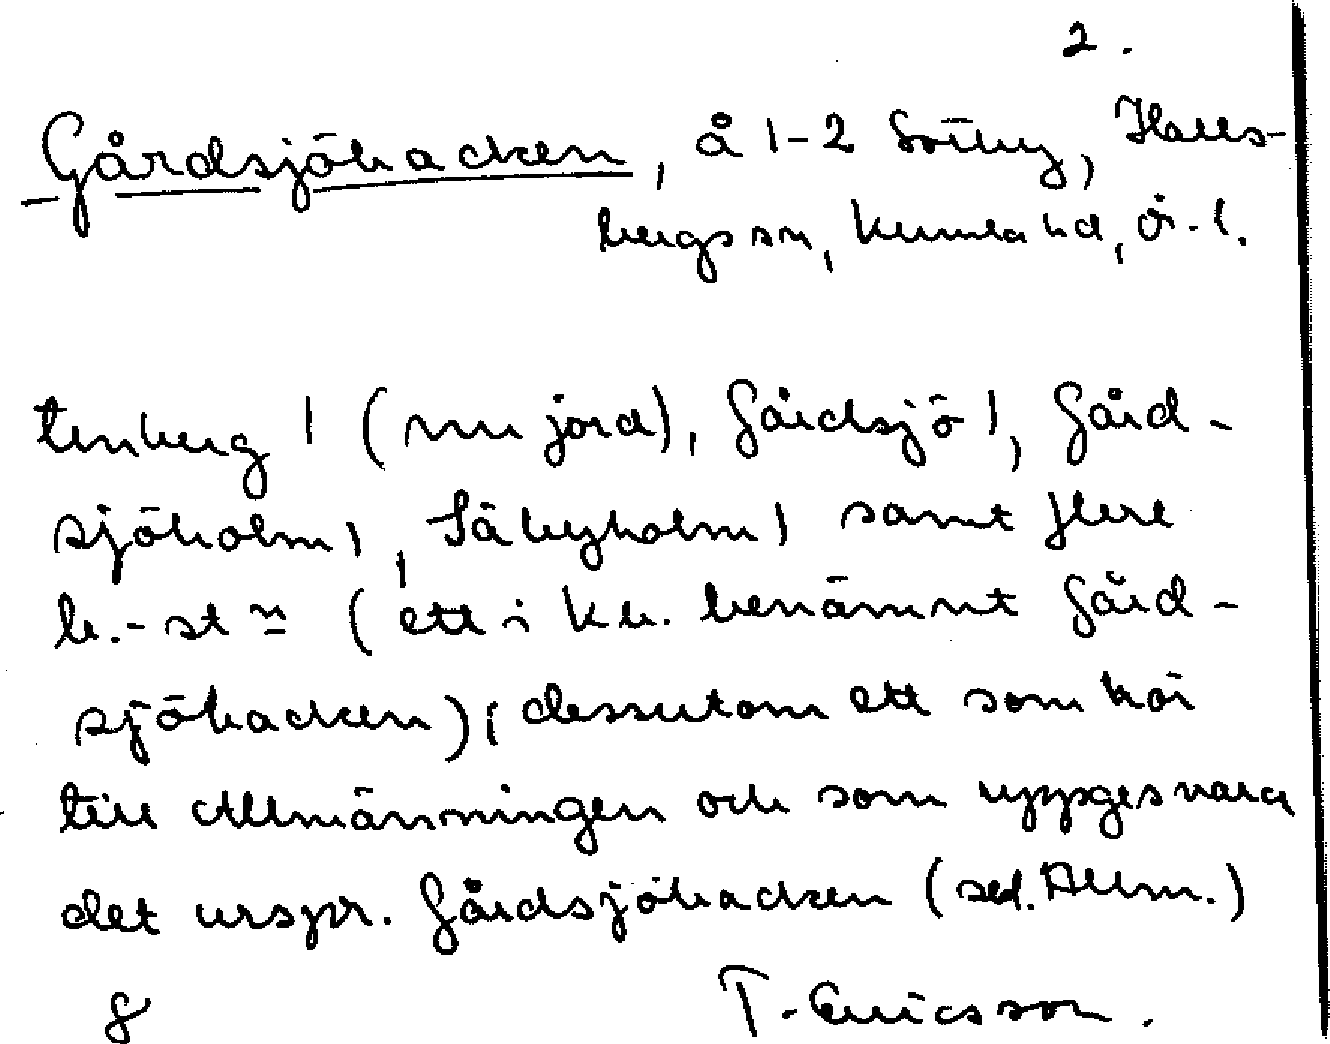 2.
Gårdsjöbacken, å 1-2 Sörby, Halls-
bergs sn, Kumla hd, Ör. l.
tenberg 1 (nu jord), Gårdsjö 1, Gård-
sjöholm 1, Säbyholm 1 samt flere
b.-st (ett i kb. benämnt Gård-
sjöbacken); dessutom ett som hör
till Allmänningen och som uppges vara
det urspr. Gårdsjöbacken (sed. Allm.)
8 T. Ericsson.